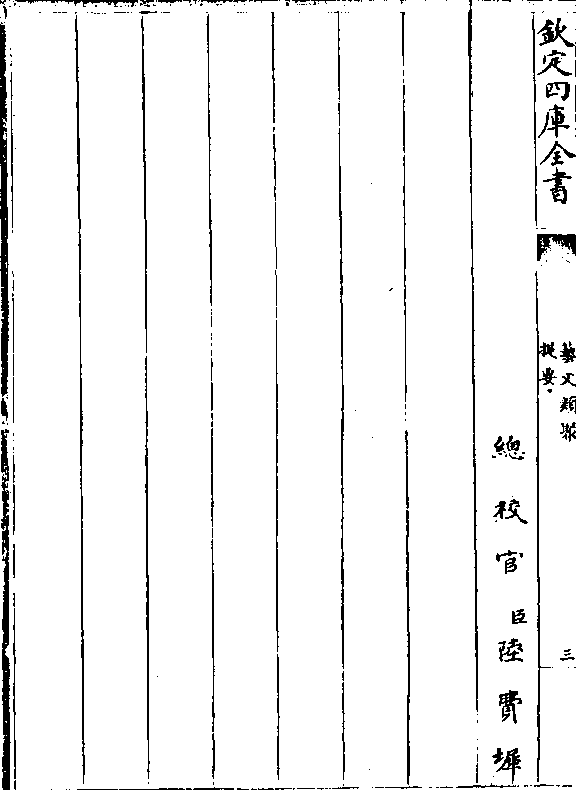 欽定四庫全書
藝文類聚
提要
三
總校官臣陸費墀